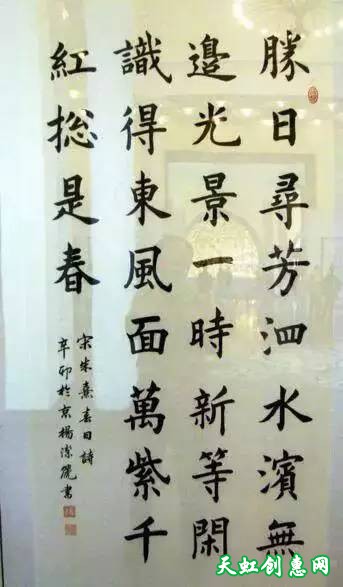 勝日尋芳泗水濱無
邊光景一時新等閑
識得東風面萬紫千
紅揔是春
宋朱熹春日詩
辛卯於京楊潔麗書
天虹创惠网